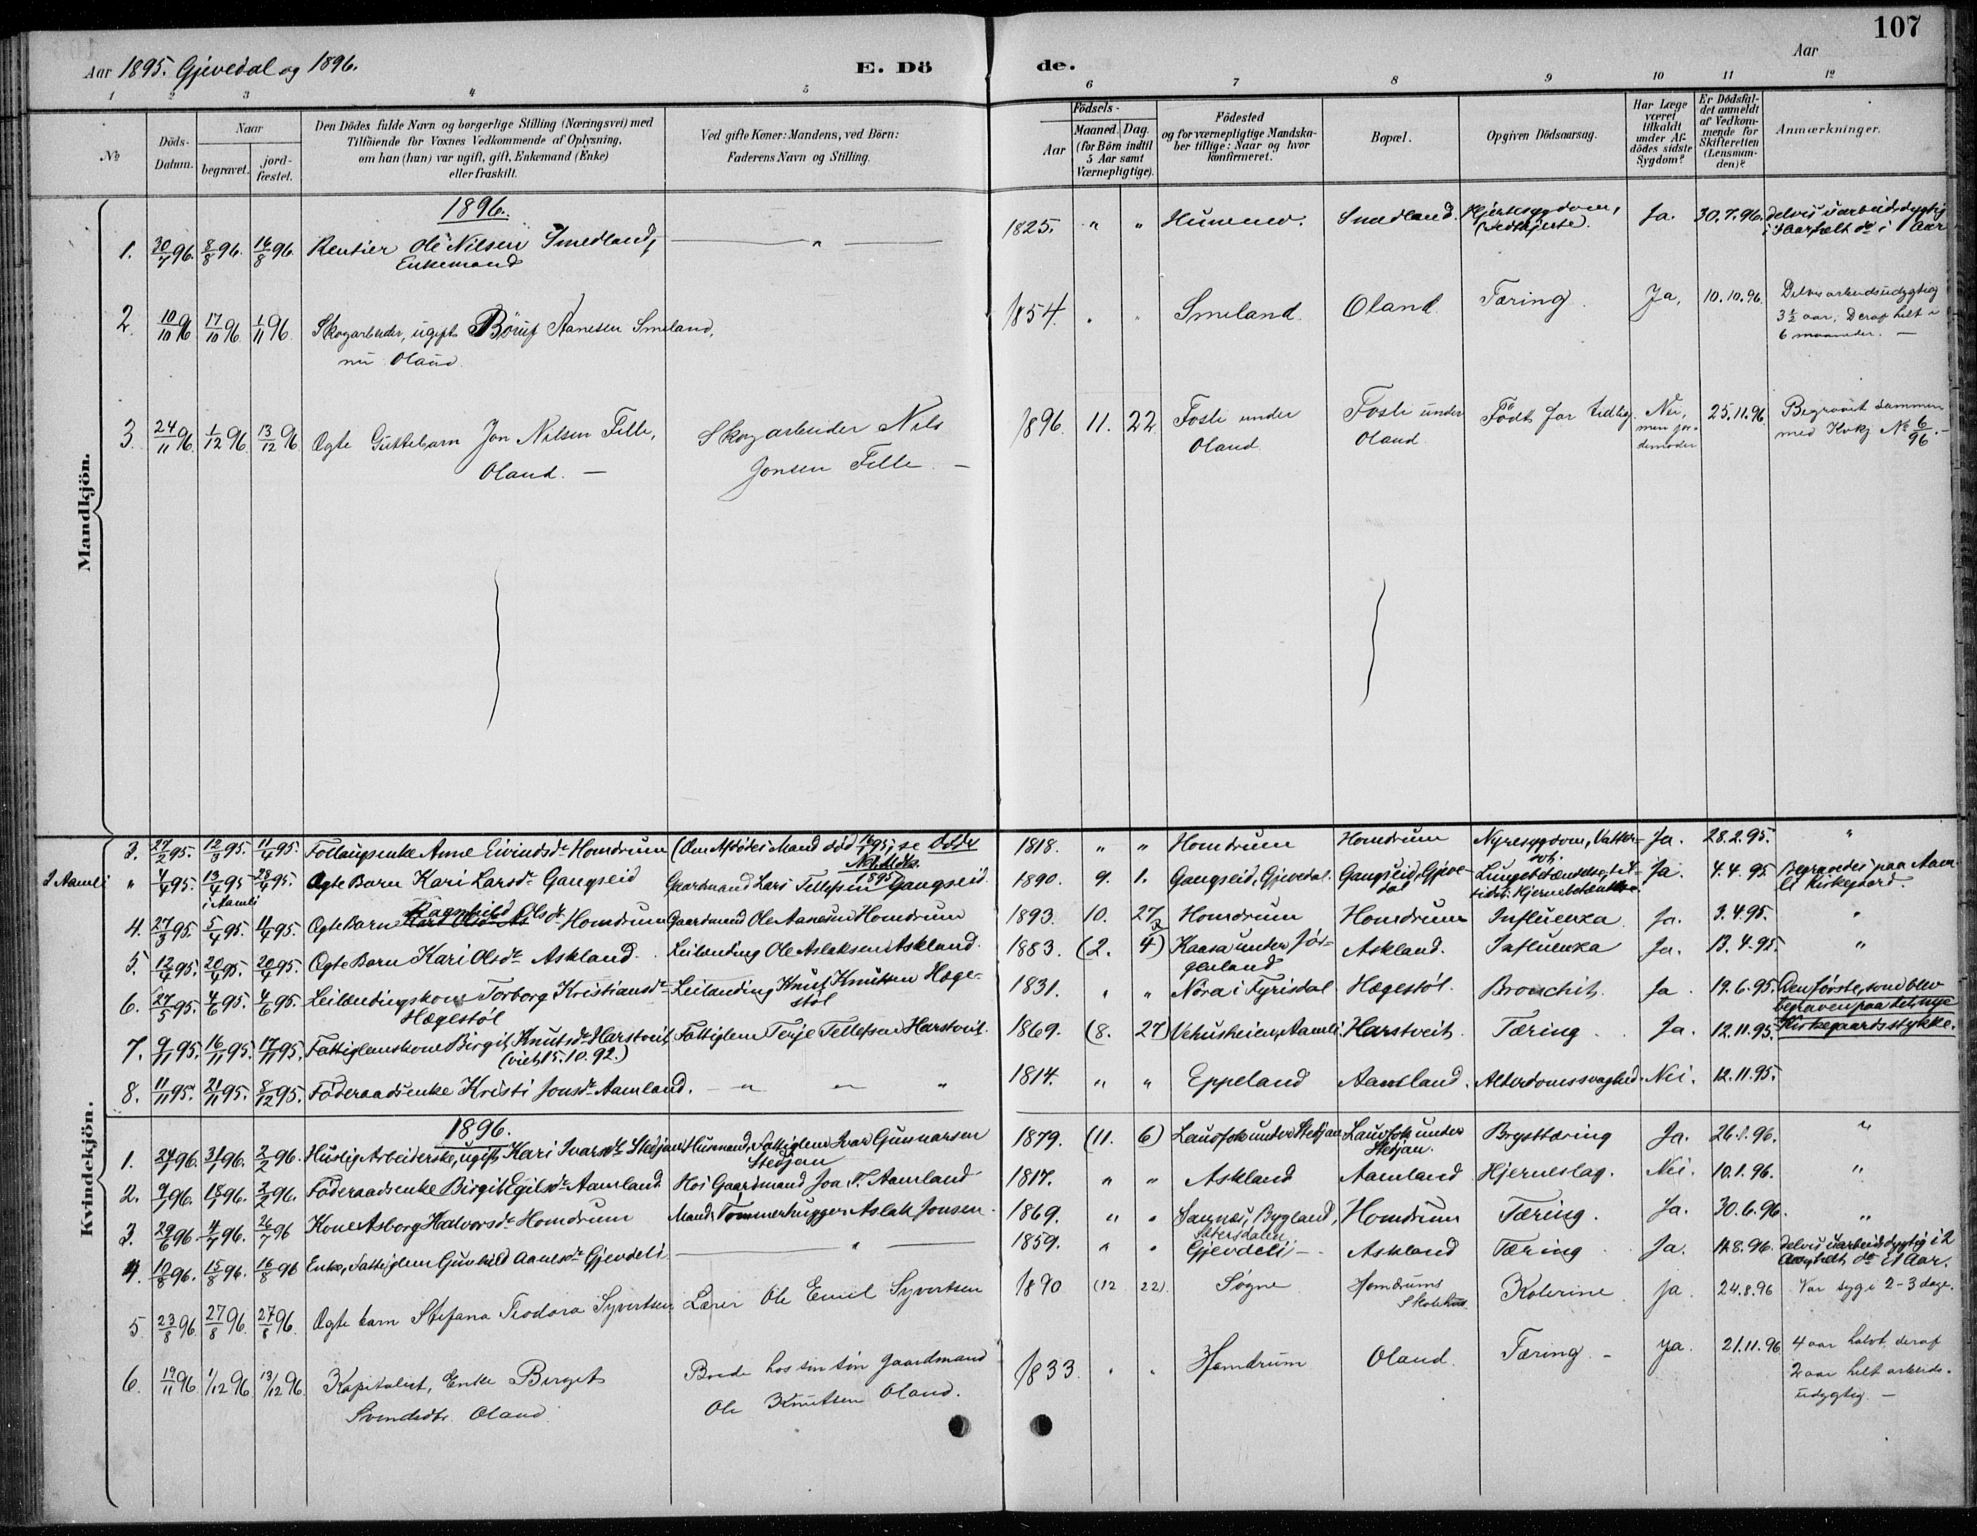 107
Aar 1895. Gjevedal og 1896. E. Dö de. Aar
1 2 3 4 5 6 7 8 9 10 11 12
No
Döds-Datum.
Naar
begravet.
jord-fæstet.
Den Dödes fulde Navn og borgerlige Stilling (Næringsvei) med
Tilföiende for Voxnes Vedkommende af Oplysning,
om han (hun) var ugift, gift, Enkemand (Enke)
eller fraskilt.
Ved gifte Koner: Mandens, ved Börn:
Faderens Navn og Stilling.
Födsels-
Aar
Maaned. Dag.
(for Börn indtil
5 Aar samt
Værnepligtige).
Födested
og for værnepligtige Mandska-
ber tillige: Naar og hvor
konfirmeret.
Bopæl.
Opgiven Dödsaarsag.
Har Læge
været
tilkaldt
under Af-
dödes sidste
Sygdom?
Er Dödsfal-
det anmeldt
af Vedkom-
mende for
Skifteretten
(Lensman-
den)?
Anmærkninger.
Mandkjön.
1896.
1. 30/7 96. 8/8 96. 16/8 96. Rentier Ole Nilsen Smedland, — " — 1825. " " Smedland. Hjertesygdom, Ja. 30.7.96. delvis uarbeidsdygtig
Enkemand
2. 10/10 96 17/10 96 1/11 96. Skogarbeider, ugift Böruf Aanesen Smeland, 1854. " " Smeland. Oland. Tæring. Ja, 10.10.96. Delvis arbeidsudygtig
nu Oland. 3½ aar, Deraf helt i
6 maaneder. —
3. 24/11 96. 1/12 96 13/12 96 Ægte Guttebarn Jon Nilsen Felle, Skogarbeider Nils 1896. 11. 22 Fosli under Fosli under Födt for tidlig. Nei, 25.11.96 Begravet sammen
Oland. — Jonsen Felle. — Oland. Oland men jor- med Kvkj No 6/96. -
demoder
Kvindekjön.
3. 27/2 95. 12/3 95. 11/4 95. Follaugsenke Anne Eivindsdr Homdrum (Om Afdödes Mand död 1895, se Döde 1818. " " Homdrum Homdrum Nyresygdom, Vatter- Ja. 28.2.95. "
1895) sot.
I Aamli " 4/4 95. 13/4 95 28/4 95. Ægte Barn Kari Larsdr Gangseid Gaardmand Lars Tellefsen Gangseid. 1890. 9. 1. Gangseid, Gjevedal. Gangseid, Gjeve- Lungebetændelse, Ja. 4.4.95 Begravedes paa Aam-
i Aamli dal Hjernebetændelse li Kirkegaard.
Ragnhild Olsdr
4. 27/3 95. 5/4 95. 11/4 95. Ægte Barn Homdrum Gaardmand Ole Aanesen Homdrum 1893. 10. 27 Homdrum Homdrum Influenza Ja. 3.4.95. "
5. 12/4 95. 20/4 95. 20/4 95. Ægte Barn Kari Olsdr Askland. Leilænding Ole Aslaksen Askland. 1883. (2. 4) Kaasa under Jör- Askland. Influenza Ja. 13.4.95. "
genland
6. 27/5 95. 4/6 95. 4/6 95. Leilændingskone Torborg Kristiansdr Leilænding Knut Knutsen Hæge- 1831. " " Nöra i Fyrisdal Hægestöl. Bronchit. Ja 19.6.95. Den förste, som blev
Hægestöl stöl begraven paa det nye
Kirkegaardsstykke.
7. 9/11 95. 16/11 95. 17/11 95. Fattiglemskone Birgit Knutsdr Harstveit, Fattiglem Terje Tellefsen Harstveit. 1869. (8. 27) Vehusheien, Aamli. Harstveit. Tæring. Ja. 12.11.95.
(viet 15.10.92.)
8. 11/11 95. 21/11 95. 8/12 95. Föderaadsenke Kristi Jonsdr Aamland. — " " " 1814. " " Eppeland Aamland. Alterdomssvaghed. Nei. 12.11.95.
1896.
1. 24/1 96. 31/1 96. 2/2 96. Huslig Arbeiderske, ugift Kari Ivarsdr Stedjan Husmand, Fattiglem Ivar Gunnarsen 1879. (11. 6) Lauvfok under Stedjan Lauvfok under Brysttæring Ja. 26.1.96. "
Stedjan Stedjan.
2. 9/1 96. 18/1 96. 2/2 96. Föderaadsenke Birgit Egilsdr Aamland Hos Gaardmand Joa T. Aamland 1817. " " Askland Aamland Hjerneslag. Nei. 10.1.96. "
3. 29/6 96. 4/7 96. 26/7 96 Kone Asborg Halvorsdr Homdrum Mands: Tömmerhugger Aslak Jonsen. 1869. " " Sannes, Bygland, Homdrum Tæring. Ja. 30.6.96. "
Sætersdalen
4. 10/8 96. 15/8 96. 16/8 96 Enke, Fattiglem Gunhild Aanesdr Gjevdeli — " — 1859. " " Gjevdeli — Askland Tæring Ja. 14.8.96. delvis uarbeidsdygtig i 2
Aar, helt do i 1 Aar.
5. 23/8 96 27/8 96. 27/8 96. Ægte barn Stefana Teodora Syvertsen Lærer Ole Emil Syvertsen 1890 (12 22). Søgne Homdrums Kolerine. ja. 24.8.96 Var syg i 2-3 dage.
Skolehus
6. 19/11 96. 1/12 96 13/12 96. Kapitalist, Enke Birgit Boede hos sin sön gaardmand 1833. " " Homdrum Oland. Tæring. — ja. 21.11.96 4 aar halvt, deraf
Svendsdtr. Oland. Ole Knutsen Oland. 2 aar helt arbeids-
udygtig. —